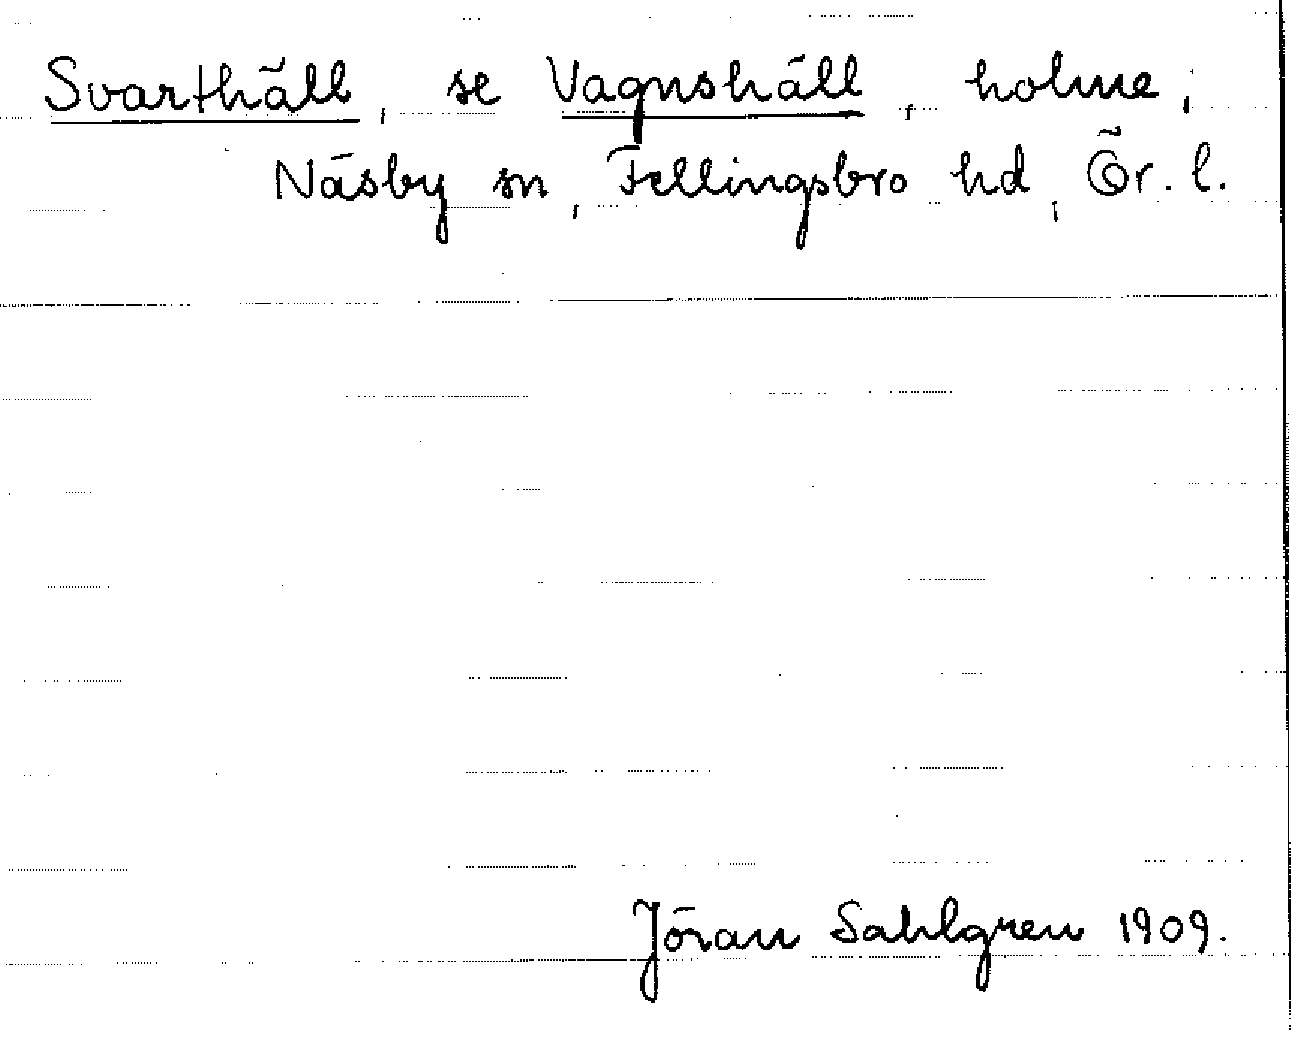 Svarthäll, se Vagnshäll, holme,
Näsby sn, Fellingsbro hd, Ör. l.
Jöran Sahlgren 1909.